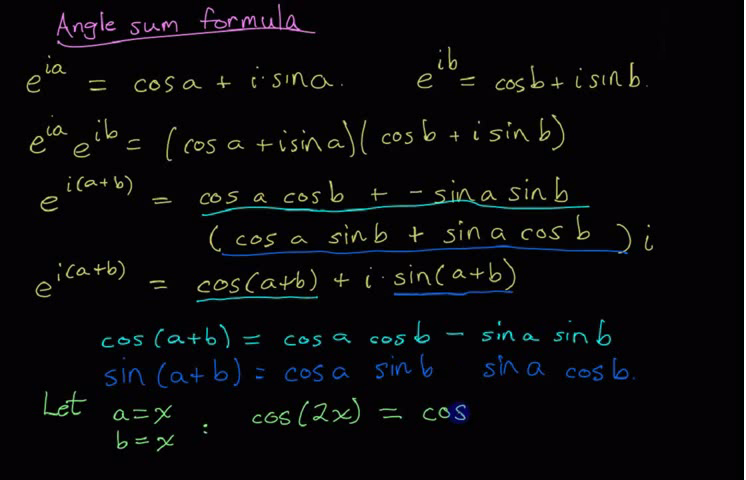 Angle sum formula
e^{ia} = cos a + i · sin a. e^{ib} = cos b + i sin b.
e^{ia} e^{ib} = (cos a + i sin a)(cos b + i sin b)
e^{i(a+b)} = cos a cos b + - sin a sin b
(cos a sin b + sin a cos b) i
e^{i(a+b)} = cos(a+b) + i · sin(a+b)
cos (a+b) = cos a cos b - sin a sin b
sin (a+b) = cos a sin b sin a cos b.
Let a = x : cos(2x) = cos
b = x